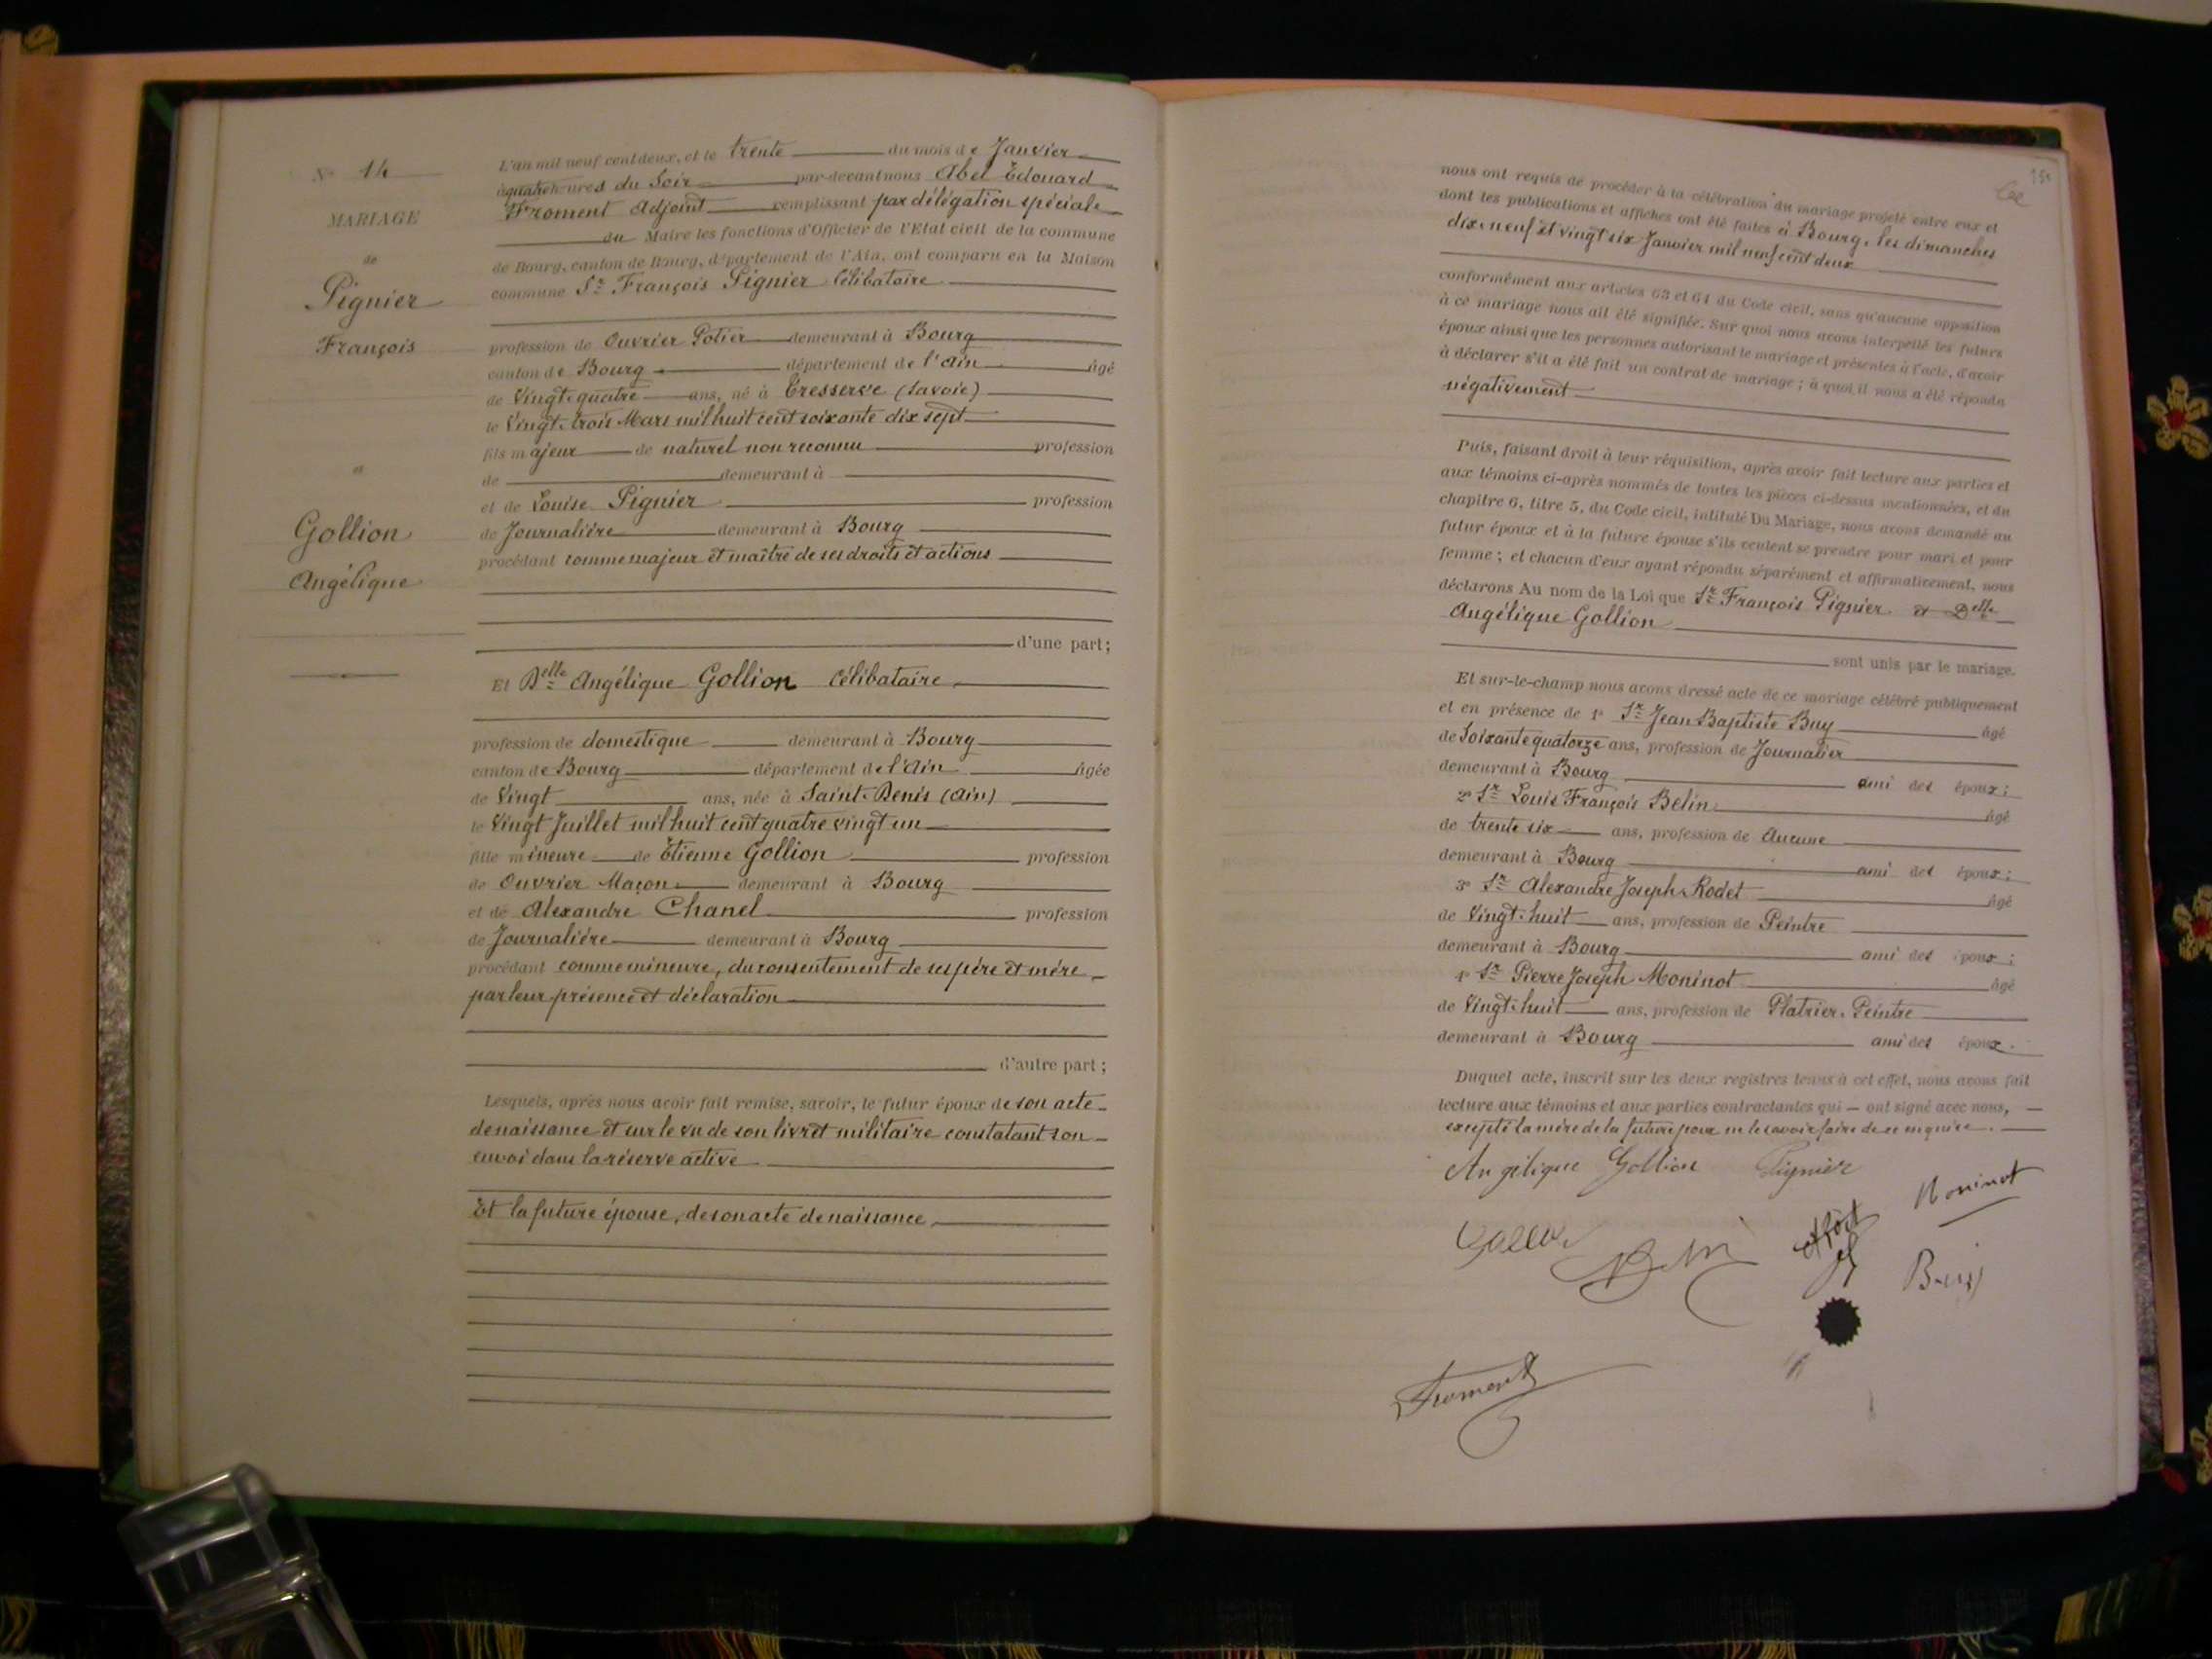 N° 14
MARIAGE
de
Pignier
François
et
Gollion
Angélique
L'an mil neuf cent deux, et le trente du mois de Janvier
à quatre heures du Soir par-devant nous Abel Edouard
Froment Adjoint remplissant par délégation spéciale
du Maire les fonctions d'Officier de l'Etat civil de la commune
de Bourg, canton de Bourg, département de l'Ain, ont comparu en la Maison
commune Sr François Pignier Célibataire
profession de Ouvrier Potier demeurant à Bourg
canton de Bourg département de l'Ain âgé
de Vingt-quatre ans, né à Tresserve (Savoie)
le Vingt-trois Mars mil huit cent soixante dix sept
fils majeur de naturel non reconnu profession
de demeurant à
et de Louise Pignier profession
de Journalière demeurant à Bourg
procédant comme majeur et maître de ses droits et actions
d'une part;
Et Delle Angélique Gollion Célibataire
profession de domestique demeurant à Bourg
canton de Bourg département de l'Ain âgée
de Vingt ans, née à Saint-Denis (Ain)
le Vingt Juillet mil huit cent quatre vingt un
fille mineure de Etienne Gollion profession
de Ouvrier Maçon demeurant à Bourg
et de Alexandre Chanel profession
de Journalière demeurant à Bourg
procédant comme mineure, du consentement de ses père et mère
par leur présence et déclaration
d'autre part;
Lesquels, après nous avoir fait remise, savoir, le futur époux de son acte
de naissance et sur le vu de son livret militaire constatant son
envoi dans la réserve active
Et la future épouse, de son acte de naissance
nous ont requis de procéder à la célébration du mariage projeté entre eux et
dont les publications et affiches ont été faites à Bourg, les dimanches
dix-neuf et vingt six Janvier mil neuf cent deux
conformément aux articles 63 et 64 du Code civil, sans qu'aucune opposition
à ce mariage nous ait été signifiée. Sur quoi nous avons interpellé les futurs
époux ainsi que les personnes autorisant le mariage et présentes à l'acte, d'avoir
à déclarer s'il a été fait un contrat de mariage; à quoi il nous a été répondu
négativement
Puis, faisant droit à leur réquisition, après avoir fait lecture aux parties et
aux témoins ci-après nommés de toutes les pièces ci-dessus mentionnées, et du
chapitre 6, titre 5, du Code civil, intitulé Du Mariage, nous avons demandé au
futur époux et à la future épouse s'ils veulent se prendre pour mari et pour
femme; et chacun d'eux ayant répondu séparément et affirmativement, nous
déclarons Au nom de la Loi que Sr François Pignier et Delle
Angélique Gollion
sont unis par le mariage.
Et sur-le-champ nous avons dressé acte de ce mariage célébré publiquement
et en présence de 1° Sr Jean Baptiste Buy âgé
de Soixante quatorze ans, profession de Journalier
demeurant à Bourg ami des époux;
2° Sr Louis François Belin âgé
de trente six ans, profession de Aucune
demeurant à Bourg ami des époux;
3° Sr Alexandre Joseph Rodet âgé
de Vingt-huit ans, profession de Peintre
demeurant à Bourg ami des époux;
4° Sr Pierre Joseph Moninot âgé
de Vingt-huit ans, profession de Platrier-Peintre
demeurant à Bourg ami des époux.
Duquel acte, inscrit sur les deux registres tenus à cet effet, nous avons fait
lecture aux témoins et aux parties contractantes qui ont signé avec nous,
excepté la mère de la future pour ne le savoir faire de ce enquise.
Angélique Gollion Pignier
Moninot
Buy
Froment